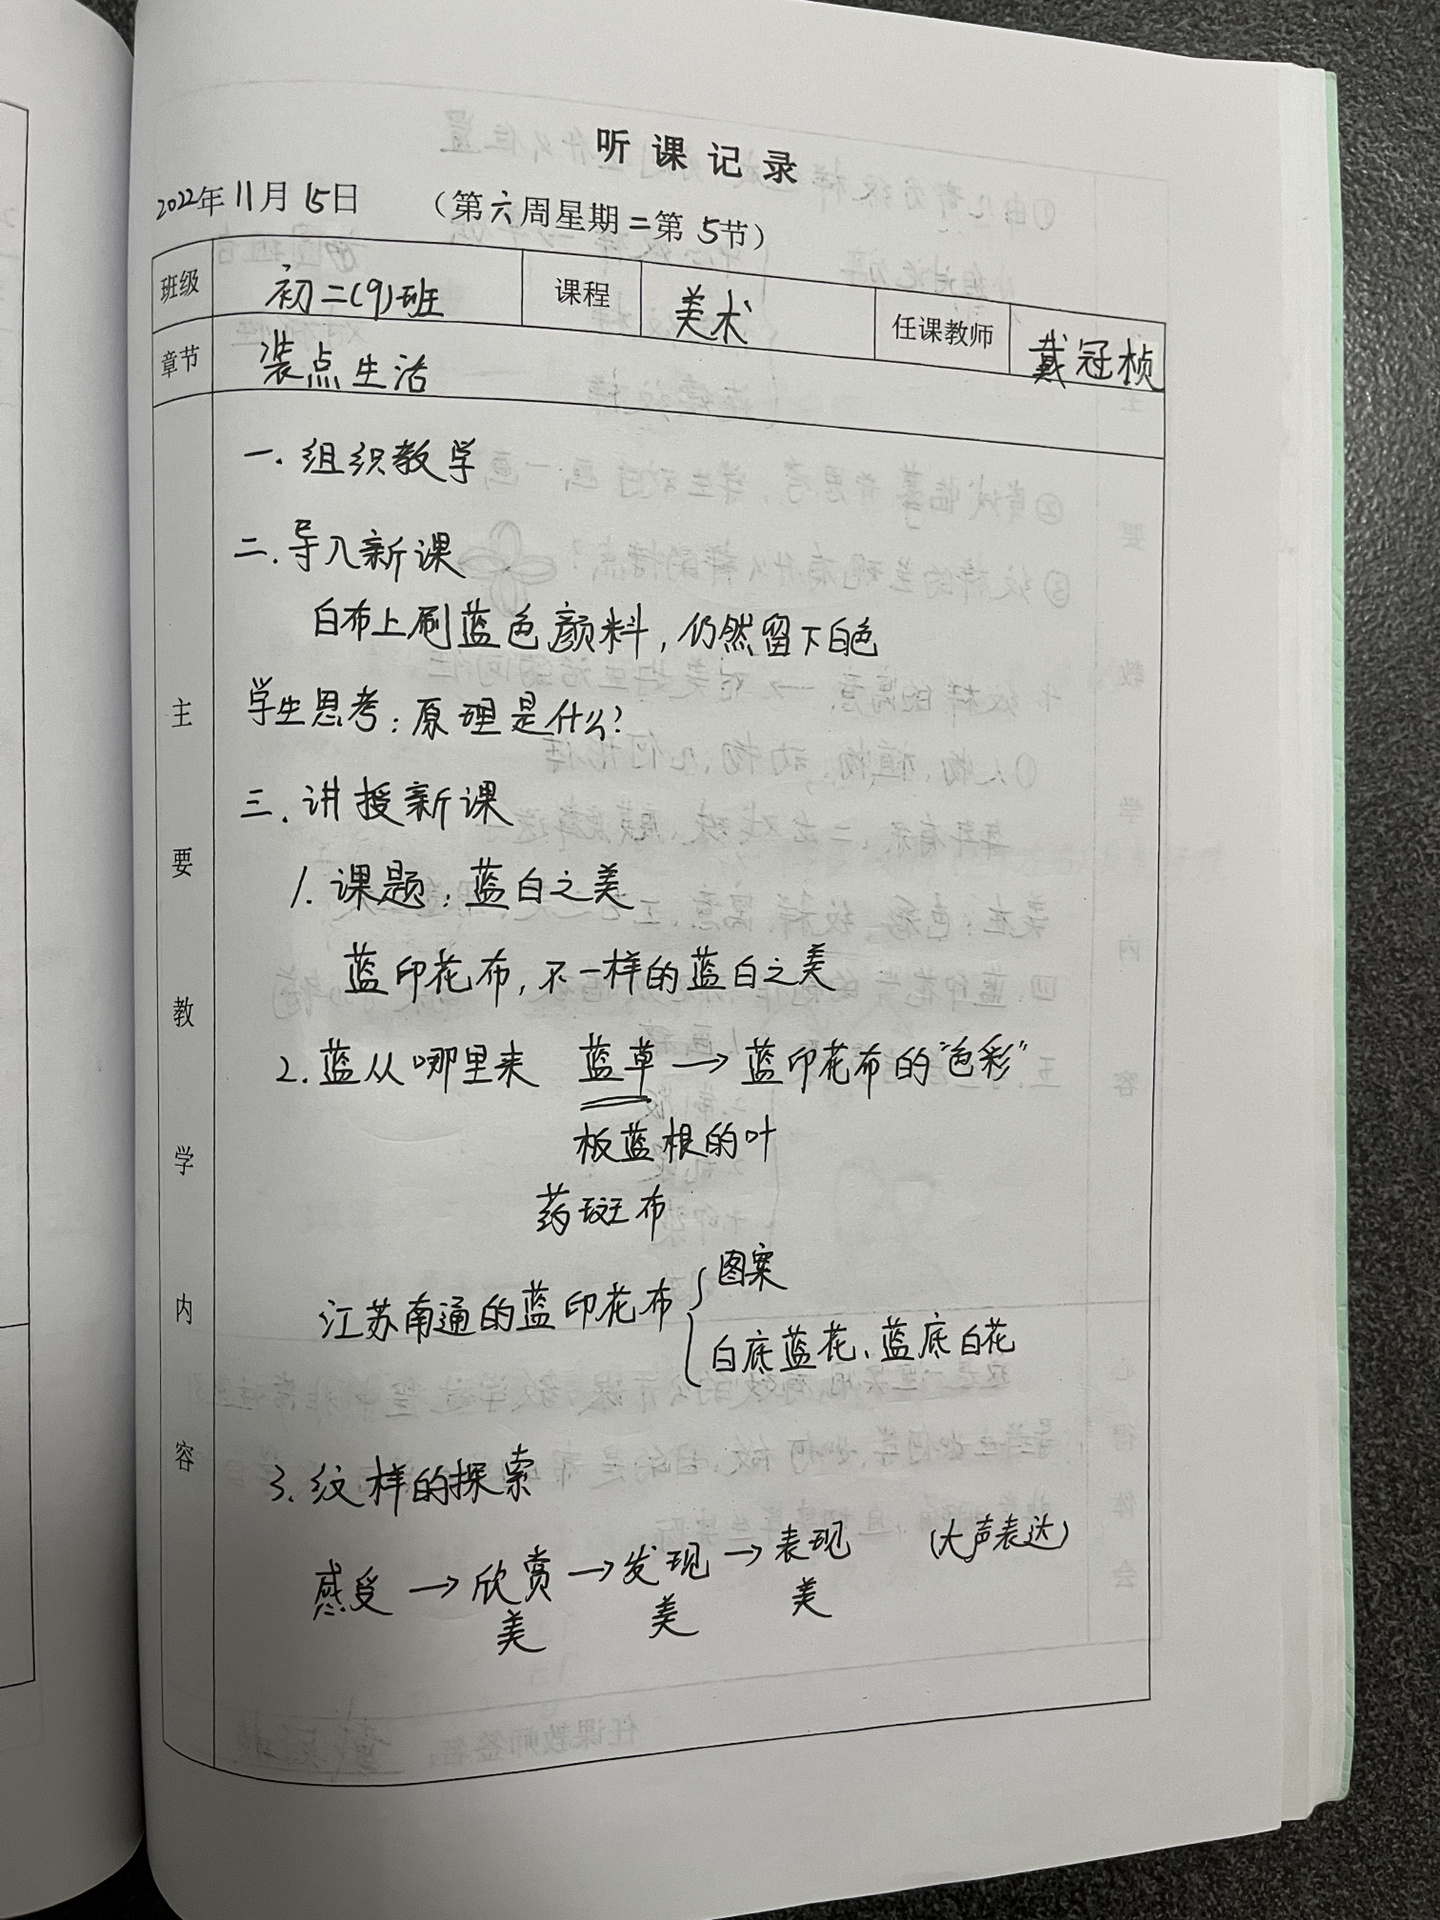 听课记录
2022年11月15日 （第六周星期二第5节）
班级 初二(9)班 课程 美术 任课教师 戴冠桢
章节 装点生活
主要教学内容
一.组织教学
二.导入新课
白布上刷蓝色颜料,仍然留下白色
学生思考:原理是什么?
三.讲授新课
1.课题:蓝白之美
蓝印花布,不一样的蓝白之美
2.蓝从哪里来 蓝草→蓝印花布的"色彩"
板蓝根的叶
药斑布
图案
江苏南通的蓝印花布
白底蓝花、蓝底白花
3.纹样的探索
感受→欣赏→发现→表现 (大声表达)
美 美 美